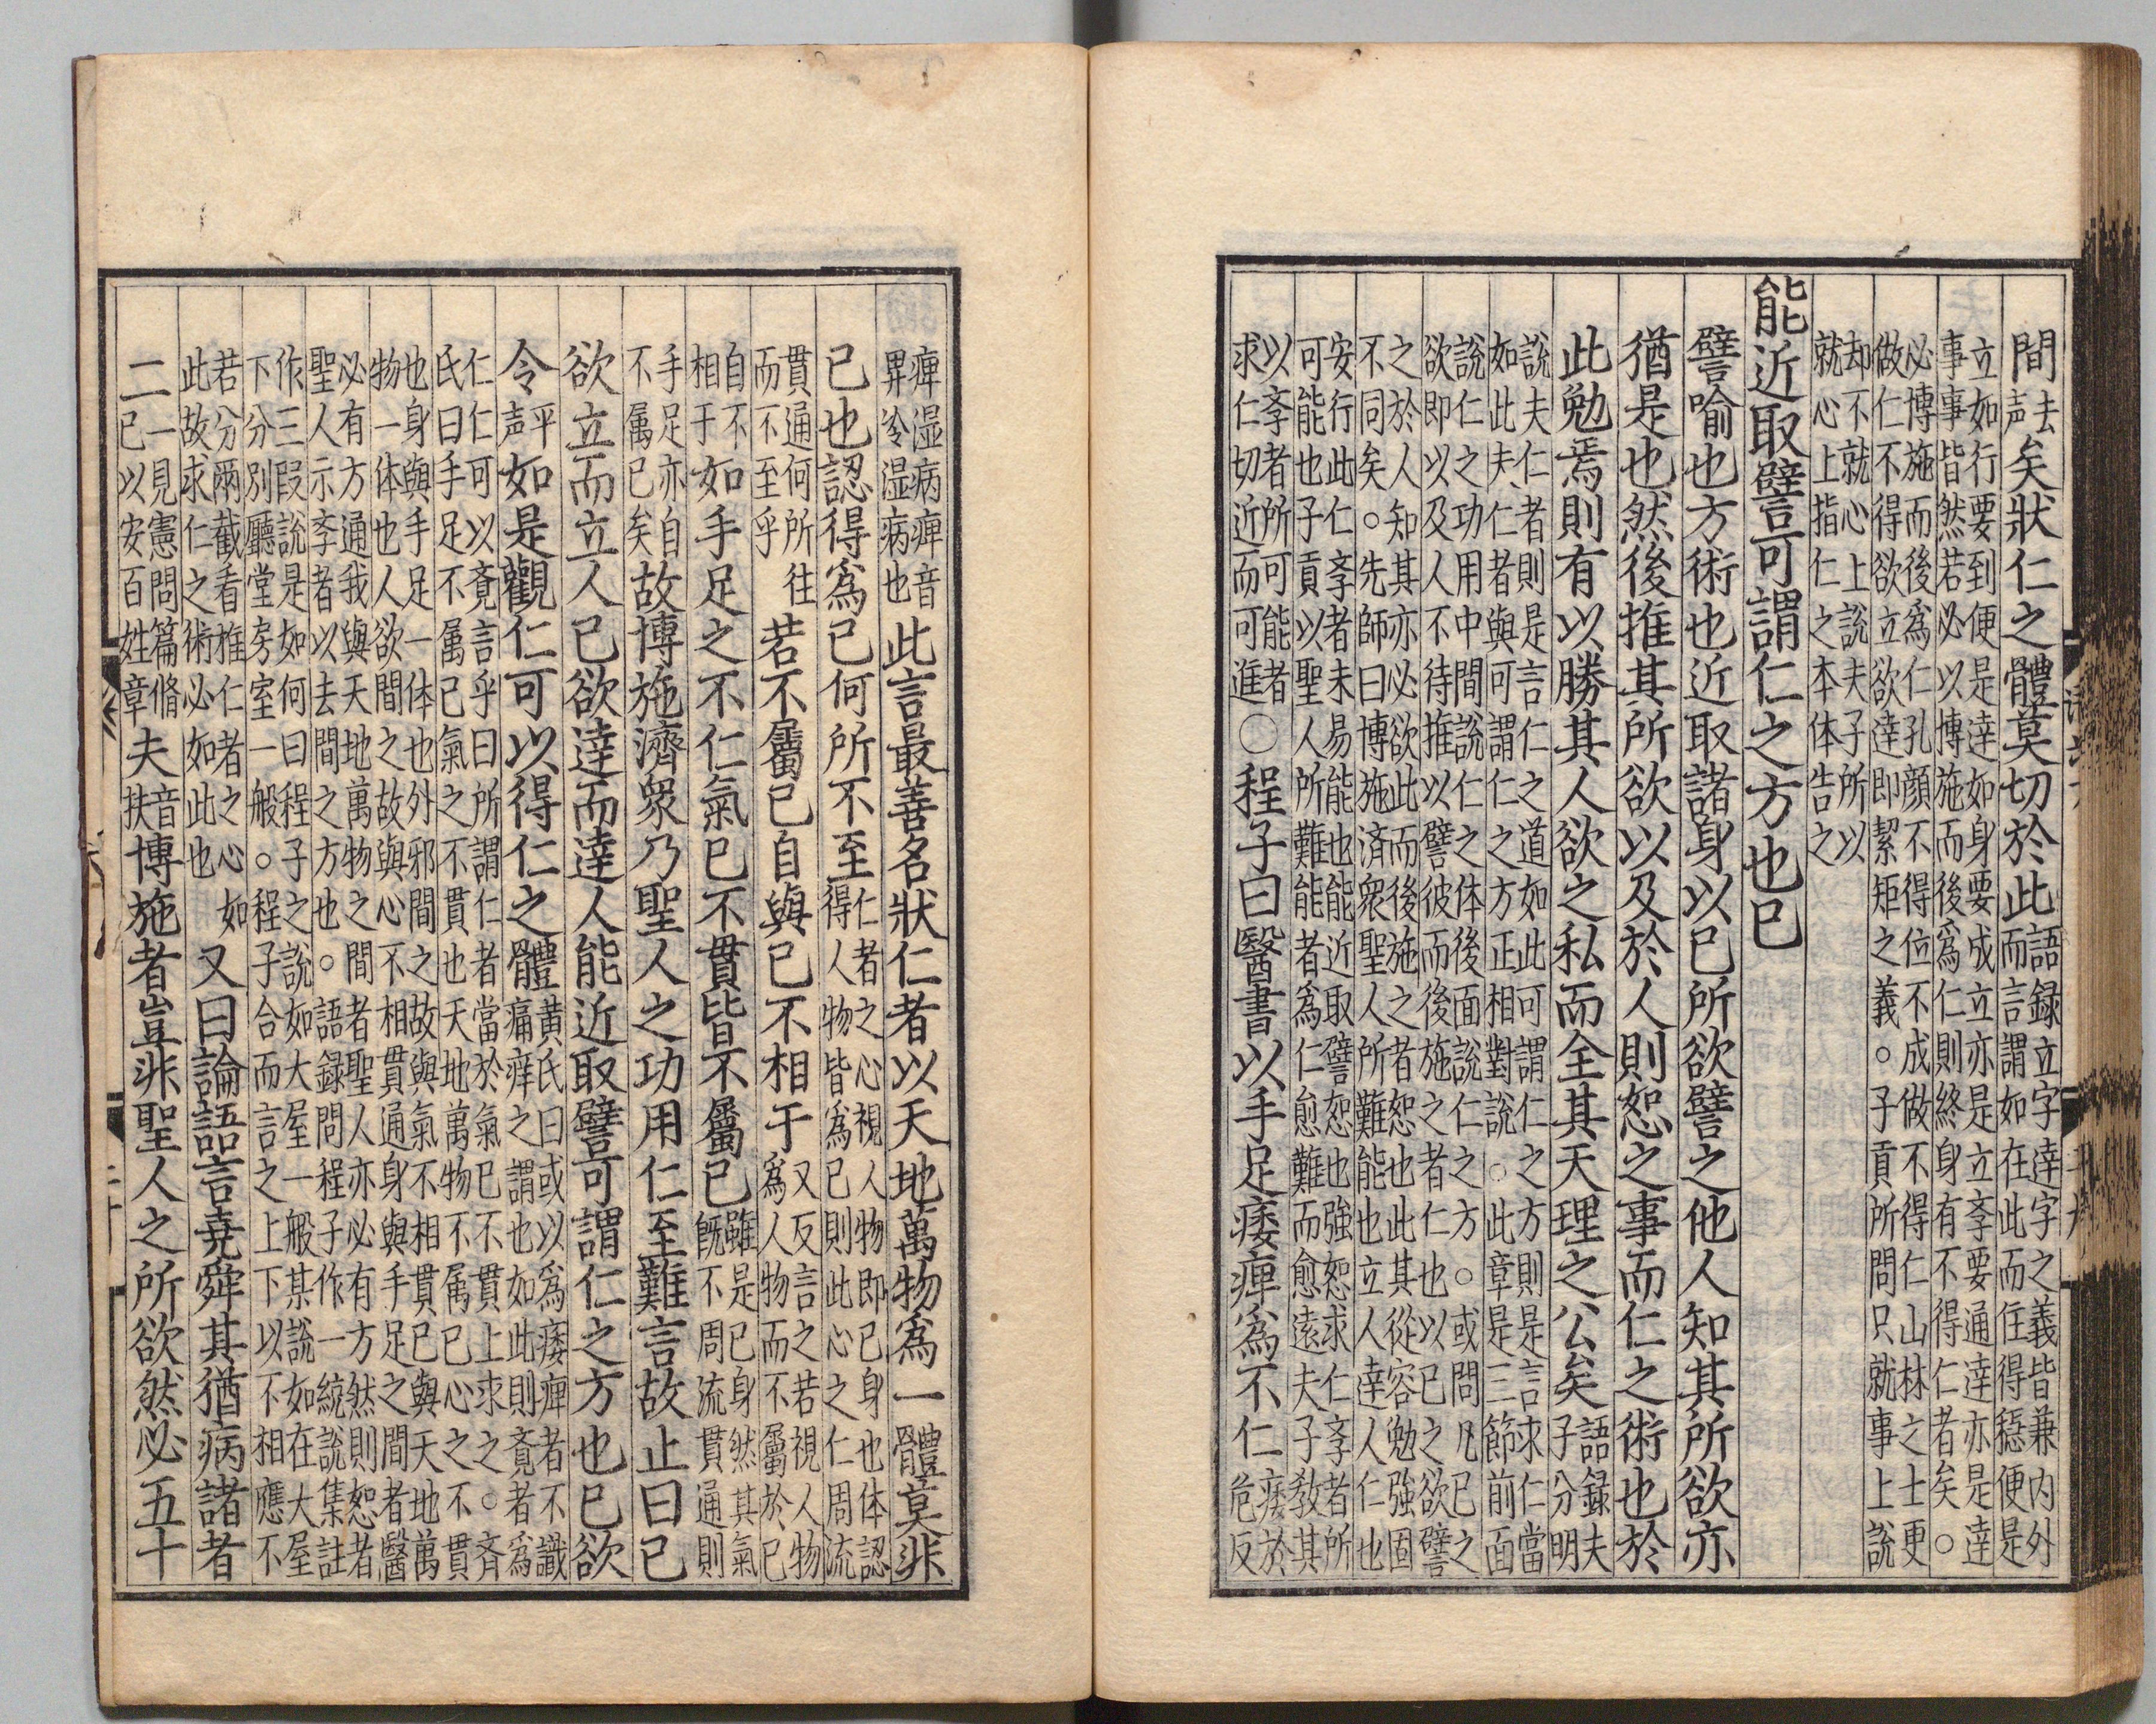 間去声矣狀仁之體莫切於此語録立字達字之義皆兼内外而言謂如在此而住得穩便是
立如行要到便是達如身要成立亦是立斈要通達亦是達事事皆然若必以博施而後爲仁則終身有不得仁者矣。
必博施而後爲仁孔顔不得位不成做不得仁山林之士更做仁不得欲立欲達即絜矩之義。子貢所問只就事上說
却不就心上說夫子所以就心上指仁之本体告之
能近取譬可謂仁之方也已
譬喻也方術也近取諸身以已所欲譬之他人知其所欲亦
猶是也然後推其所欲以及於人則恕之事而仁之術也於
此勉焉則有以勝其人欲之私而全其天理之公矣語録夫子分明
說夫仁者則是言仁之道如此可謂仁之方則是言求仁當如此夫、仁者與可謂仁之方正相對說。此章是三節前面
說仁之功用中間說仁之体後面說仁之方。或問凡已之欲即以及人不待推以譬彼而後施之者仁也以已之欲譬
之於人知其亦必欲此而後施之者恕也此其從容勉強固不同矣。先師曰博施済衆聖人所難能也立人達人仁也
安行此仁斈者未易能也能近取譬恕也強恕求仁斈者所可能也子貢以聖人所難能者爲仁愈難而愈遠夫子教其
以斈者所可能者求仁切近而可進○程子曰醫書以手足痿痺爲不仁痿於危反
痺湿病痺音畀冷湿病也此言最善名狀仁者以天地萬物爲一體莫非
已也認得爲已何所不至仁者之心視人物即已身也体認得人物皆爲已則此心之仁周流
貫通何所往而不至乎若不屬已自與已不相干又反言之若視人物爲人物而不屬於已
自不相干如手足之不仁氣已不貫皆不屬已雖是已身然其氣既不周流貫通則
手足亦自不属已矣故博施濟衆乃聖人之功用仁至難言故止曰已
欲立而立人已欲達而達人能近取譬可謂仁之方也已欲
令平声如是觀仁可以得仁之體黄氏曰或以爲痿痺者不識痛痒之謂也如此則覔者爲
仁仁可以覔言乎曰所謂仁者當於氣已不貫上求之。斉氏曰手足不属已氣之不貫也天地萬物不属已心之不貫
也身與手足一体也外邪間之故與氣不相貫已與天地萬物一体也人欲間之故與心不相貫通身與手足之間者醫
必有方通我與天地萬物之間者聖人亦必有方然則恕者聖人示斈者以去間之方也。語録問程子作一統說集註
作三叚說是如何曰程子之說如大屋一般某說如在大屋下分別廳堂房室一般。程子合而言之上下以不相應不
若分兩截看推仁者之心如此故求仁之術必如此也又曰論語言堯舜其猶病諸者
二一見憲問篇脩已以安百姓章夫音扶博施者豈非聖人之所欲然必五十